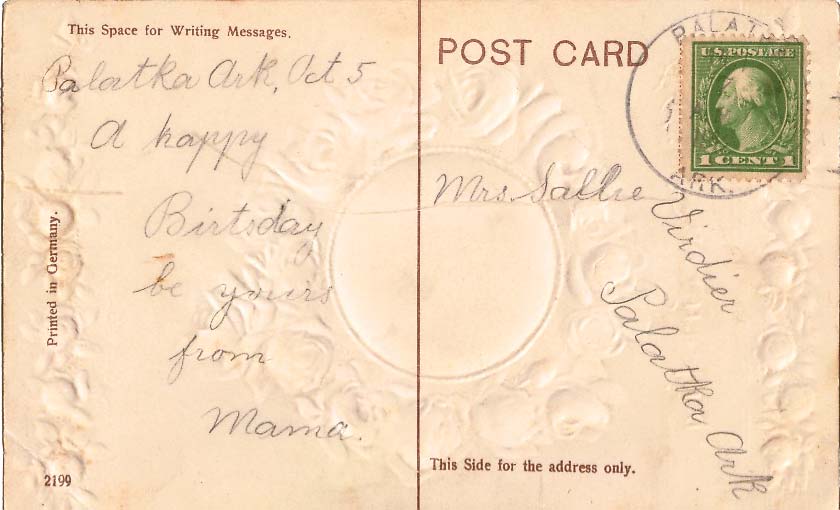 This Space for Writing Messages.
Palatka Ark, Oct 5
A happy
Birtsday
be yours
from
Mama.
Printed in Germany.
2199
POST CARD
PALATK
ARK.
U.S. POSTAGE
1 CENT 1
Mrs. Sallie Virdier
Palatka Ark
This Side for the address only.